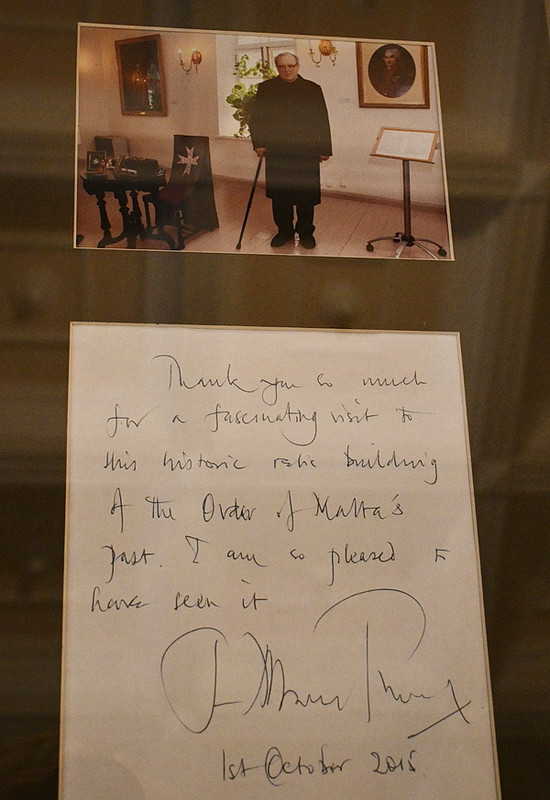 Thank you so much
for a fascinating visit to
this historic relic building
of the Order of Malta's
past. I am so pleased to
have seen it
1st October 2015